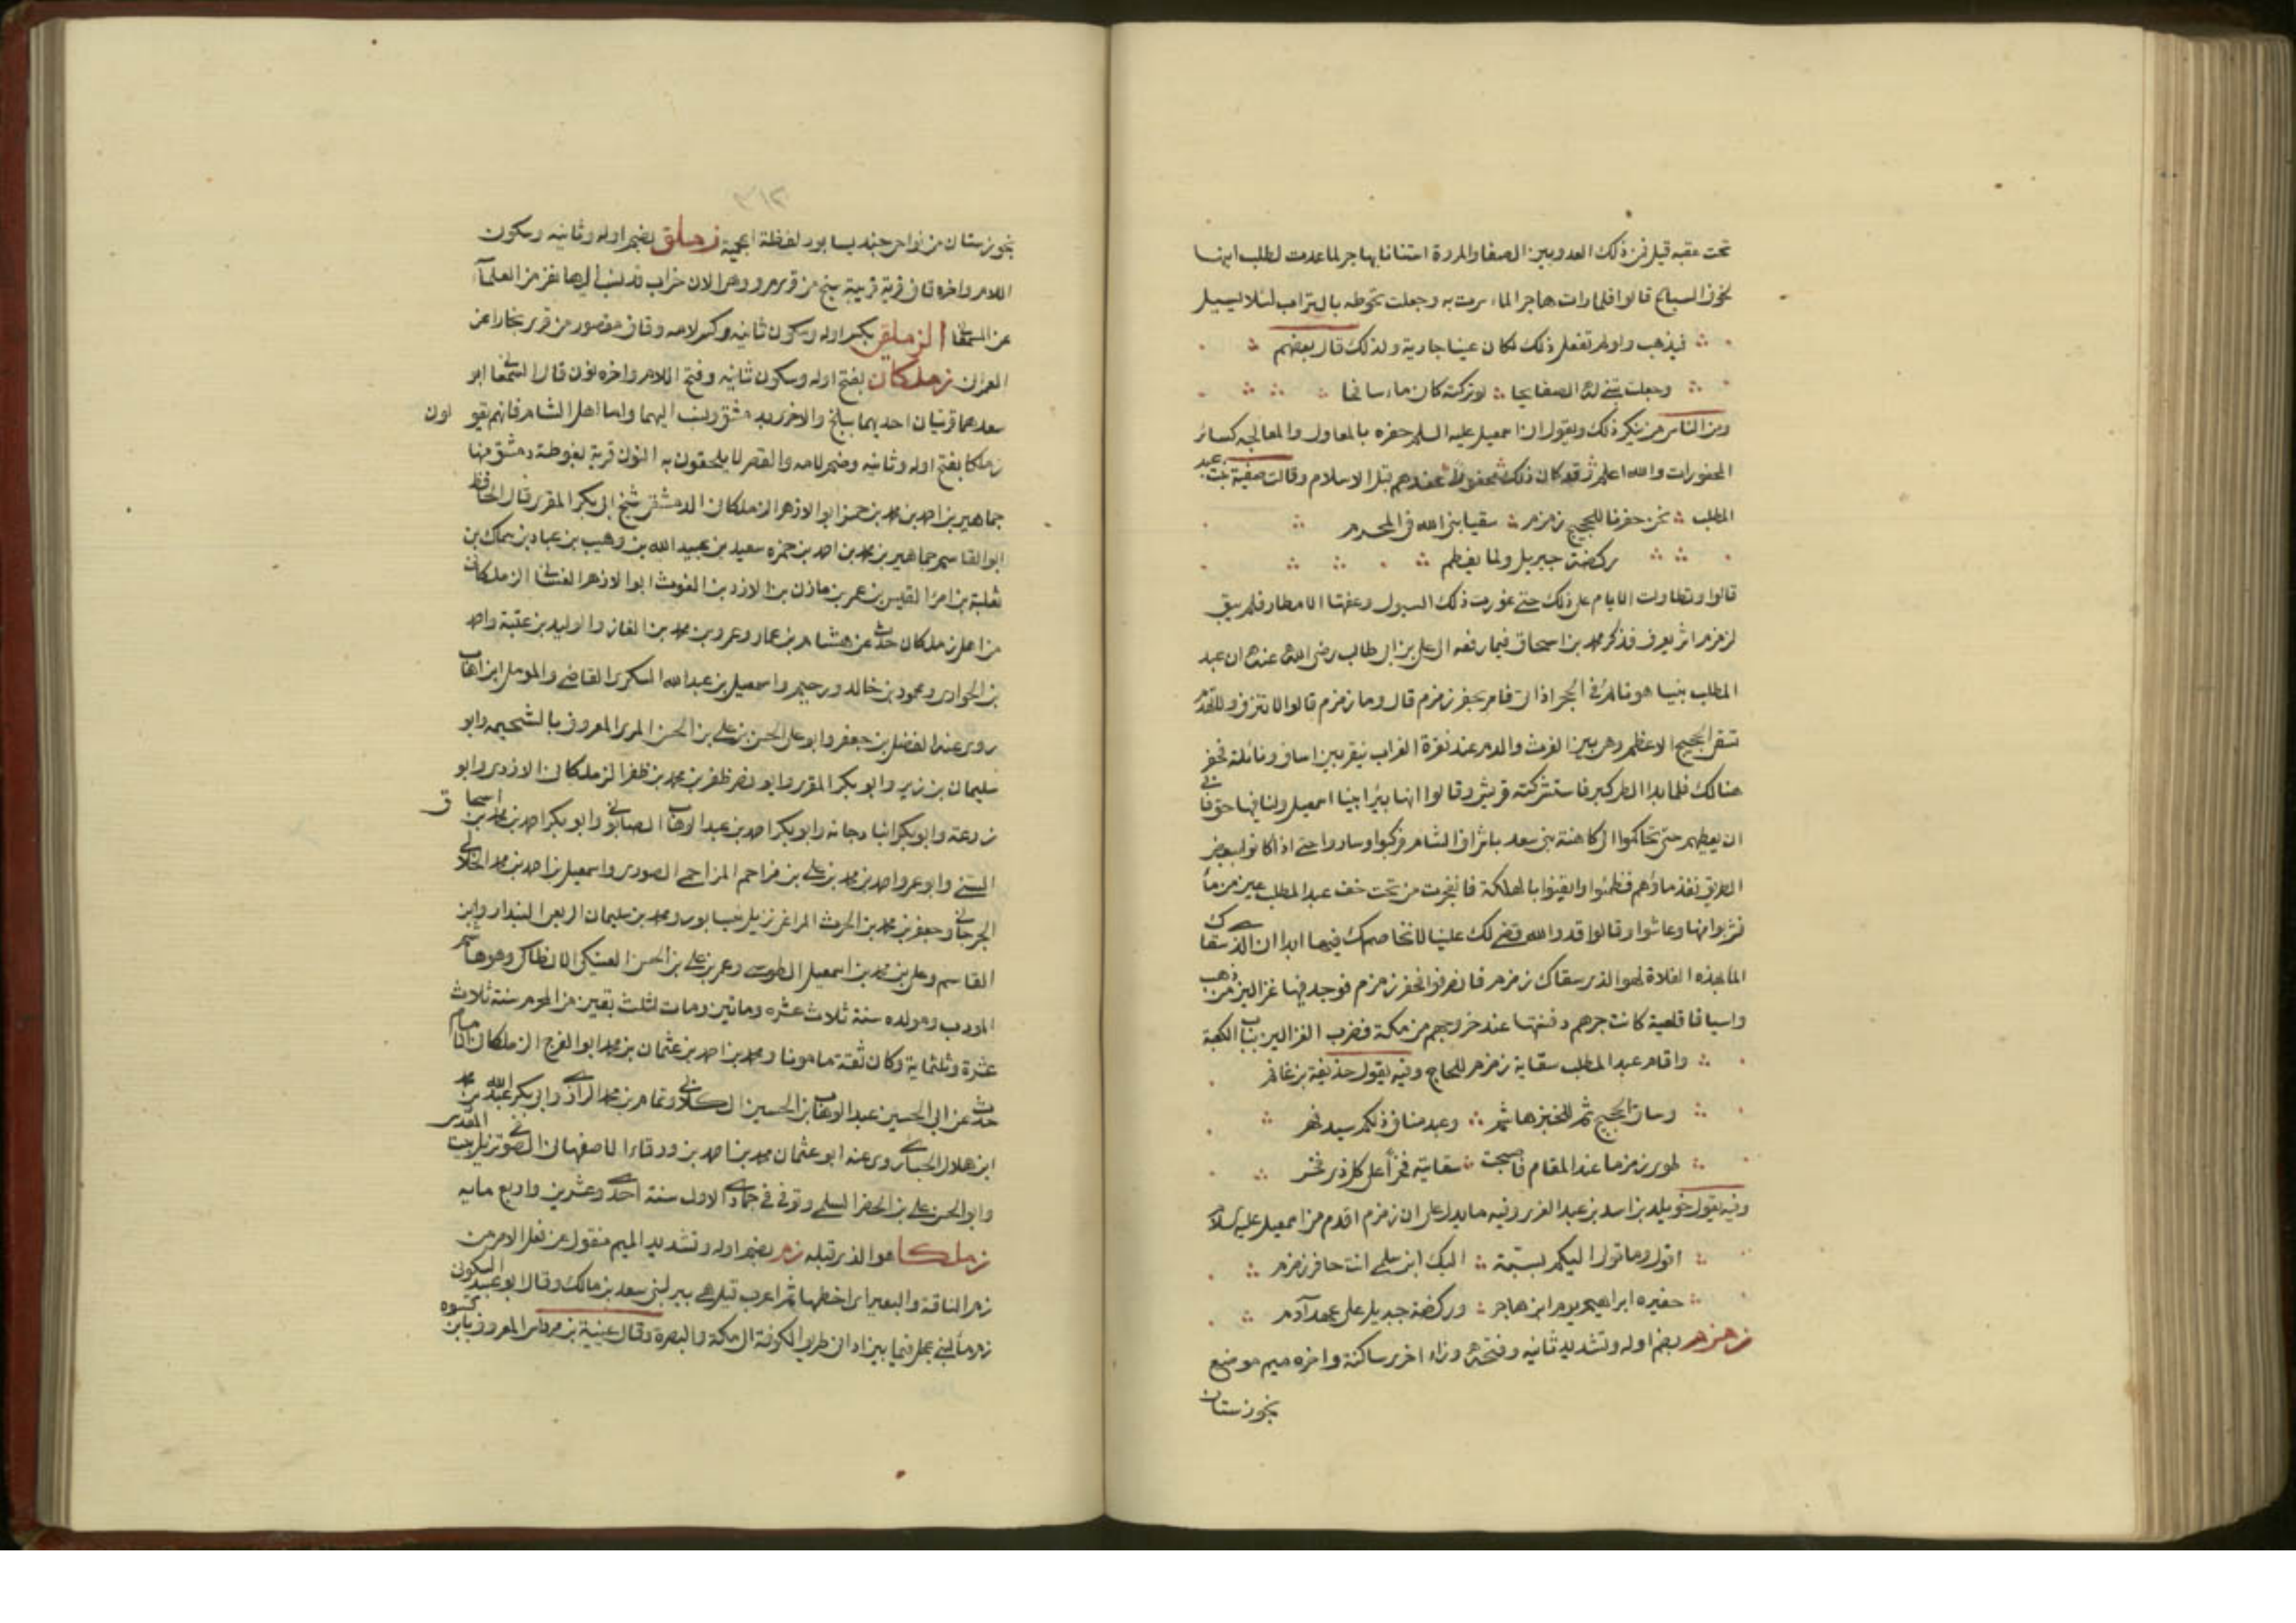 تحت عقبه قيل فمن ذلك العدو بين الصفا والمروة استنانا بهاجر لما عدت لطلب ابنها
لخوف السباع قالوا فلما رات هاجر الماء سرت به وجعلت تحوطه بالتراب لئلا يسيل
فيذهب ولو لم تفعل ذلك لكان عينا جارية ولذلك قال بعضهم
وجعلت تبني له الصفايحا لو تركته كان ماء سائحا
ومن الناس من ينكر ذلك ويقول ان اسمعيل عليه السلم حفره بالمعاول والمعالجه كسائر
المحفورات والله اعلم وقد كان ذلك محفوظا عندهم قبل الاسلام وقالت صفية بنت عبد
المطلب نحن حفرنا للحجيج زمزم سقيا نبي الله في المحرم
ركضة جبريل ولما يفطم
قالوا وتطاولت الايام على ذلك حتى غورت ذلك السيول وعفتها الامطار فلم يبق
لزمزم اثر يعرف فذكر محمد بن اسحاق فيما رفعه الى علي بن ابي طالب رضي الله عنه ان عبد
المطلب بينما هو نائم في الحجر اذ اتي فامر بحفر زمزم قال وما زمزم قالوا لا تنزف ولا تهدم
تسقي الحجيج الاعظم وهي بين الفرث والدم عند نقرة الغراب ينقر بين اساف ونائلة فحفر
هنالك فلما بدا الطي كبر فاستشركته قريش وقالوا انها بئر ابينا اسمعيل ولنا فيها حق فابى
ان يعطيهم حتى تحاكموا الى كاهنة بني سعد باشراف الشام فركبوا وساروا حتى اذا كانوا ببعض
الطريق نفد ماؤهم فظمئوا وايقنوا بالهلكة فانفجرت من تحت خف عبد المطلب عين من ماء
فشربوا منها وعاشوا وقالوا قد والله قضي لك علينا لا نخاصمك فيها ابدا ان الذي سقاك
الماء بهذه الفلاة لهو الذي سقاك زمزم فانصرفوا فحفر زمزم فوجد فيها غزالين من ذهب
واسيافا قلعية كانت جرهم دفنتها عند خروجهم من مكة فضرب الغزالين بباب الكعبة
واقام عبد المطلب سقاية زمزم للحاج وفيه يقول حذيفة بن غانم
وساقي الحجيج ثم للخبز هاشم وعبد مناف ذلكم سيد فهر
طوى زمزما عند المقام فاصبحت سقايته فخرا على كل ذي فخر
وفيه يقول خويلد بن اسد بن عبد العزى وفيه ما يدل على ان زمزم اقدم من اسمعيل عليه السلام
اقول وما قولي اليكم بسبة اليك ابن سلمى انت حافر زمزم
حفيره ابراهيم يوم ابن هاجر وركضة جبريل على عهد آدم
زمزم بضم اوله وتشديد ثانيه وفتحه وزاء اخرى ساكنة واخره ميم موضع
بخوزستان
٣١٢
بخوزستان من نواحي جنديسابور لفظة اعجمية زملق بضم اوله وثانيه وسكون
اللام واخره قاف قرية قريبة من سنج من قرى مرو وهي الان خراب قد نسب اليها نفر من العلماء
عن السمعاني الزملقى بكسر اوله وسكون ثانيه وكسر لامه وقاف مقصور من قرى بخارا عن
العمراني زملكان بفتح اوله وسكون ثانيه وفتح اللام واخره نون قال السمعاني ابو
سعد هما قريتان احديهما ببلخ والاخرى بدمشق ونسب اليهما واما اهل الشام فانهم يقولون
زملكا بفتح اوله وثانيه وضم لامه والقصر لا يلحقون به النون قرية بغوطة دمشق منها
جماهير بن احمد بن محمد بن حمزه ابو الازهر الزملكاني الدمشقي شيخ ابي بكر المقري قال الحافظ
ابو القاسم جماهير بن محمد بن احمد بن حمزه سعيد بن عبيد الله بن وهيب بن عباد بن سماك بن
ثعلبة بن امرؤ القيس بن عمر بن مازن بن الازد بن الغوث ابو الازهر الغساني الزملكاني
من اهل زملكان حدث عن هشام بن عمار وعمرو بن محمد بن الغاز والوليد بن عتبة واحمد
بن الحوارى ومحمود بن خالد ورحيم واسمعيل بن عبد الله السكري القاضي والمومل ابن اهاب
روى عنه الفضل بن جعفر وابو علي الحسن بن علي بن الحسن المري المعروف بالشحيمه وابو
سليمان بن زبر وابو بكر المقري وابو نصر ظفر بن محمد بن ظفر الزملكاني الازدي وابو
زرعة وابو بكر ابنا دجانه وابو بكر احمد بن عبد الوهاب الصابوني وابو بكر احمد بن محمد بن اسحاق
السني وابو عمرو احمد بن محمد بن علي بن مزاحم المزاحمي الصوري واسمعيل بن احمد بن محمد الخلالي
الجرجاني وجعفر بن محمد بن الحرث المراغي نزيل نيسابور ومحمد بن سليمان الربعي البندار وابن
القاسم وعلي بن محمد بن اسمعيل الطوسي وعمر بن علي بن الحسن العتيكي الانطاكي وهو هاشم
المودب ومولده سنة ثلاث عشره وماتين ومات لثلث بقين من المحرم سنة ثلاث
عشرة وثلثماية وكان ثقة مامونا ومحمد بن احمد بن عثمان بن محمد ابو الفرج الزملكاني الامام
حدث عن ابي الحسين عبد الوهاب بن الحسين الكلابي وتمام بن محمد الرازي وابو بكر عبد الله بن محمد
ابن هلال الحبائي روى عنه ابو عثمان محمد بن احمد بن ورقاء الاصفهاني الصوفي نزيل بيت المقدس
وابو الحسن علي بن الخضر السلمي وتوفي في جمادى الاولى سنة احدى وعشرين واربع مايه
زملكا هو الذي قبله زم بضم اوله وتشديد الميم منقول عن فعل الامر من
زم الناقة والبعير اى اخطمها ثم اعرب قيل هي بير لبني سعد بن مالك وقال ابو عبيد السكوني
زم ماء لبني عجل فيما بين ادانى طريق الكوفة الى مكة والبصرة وقال عيينة بن مرداس المعروف بابن كسوه